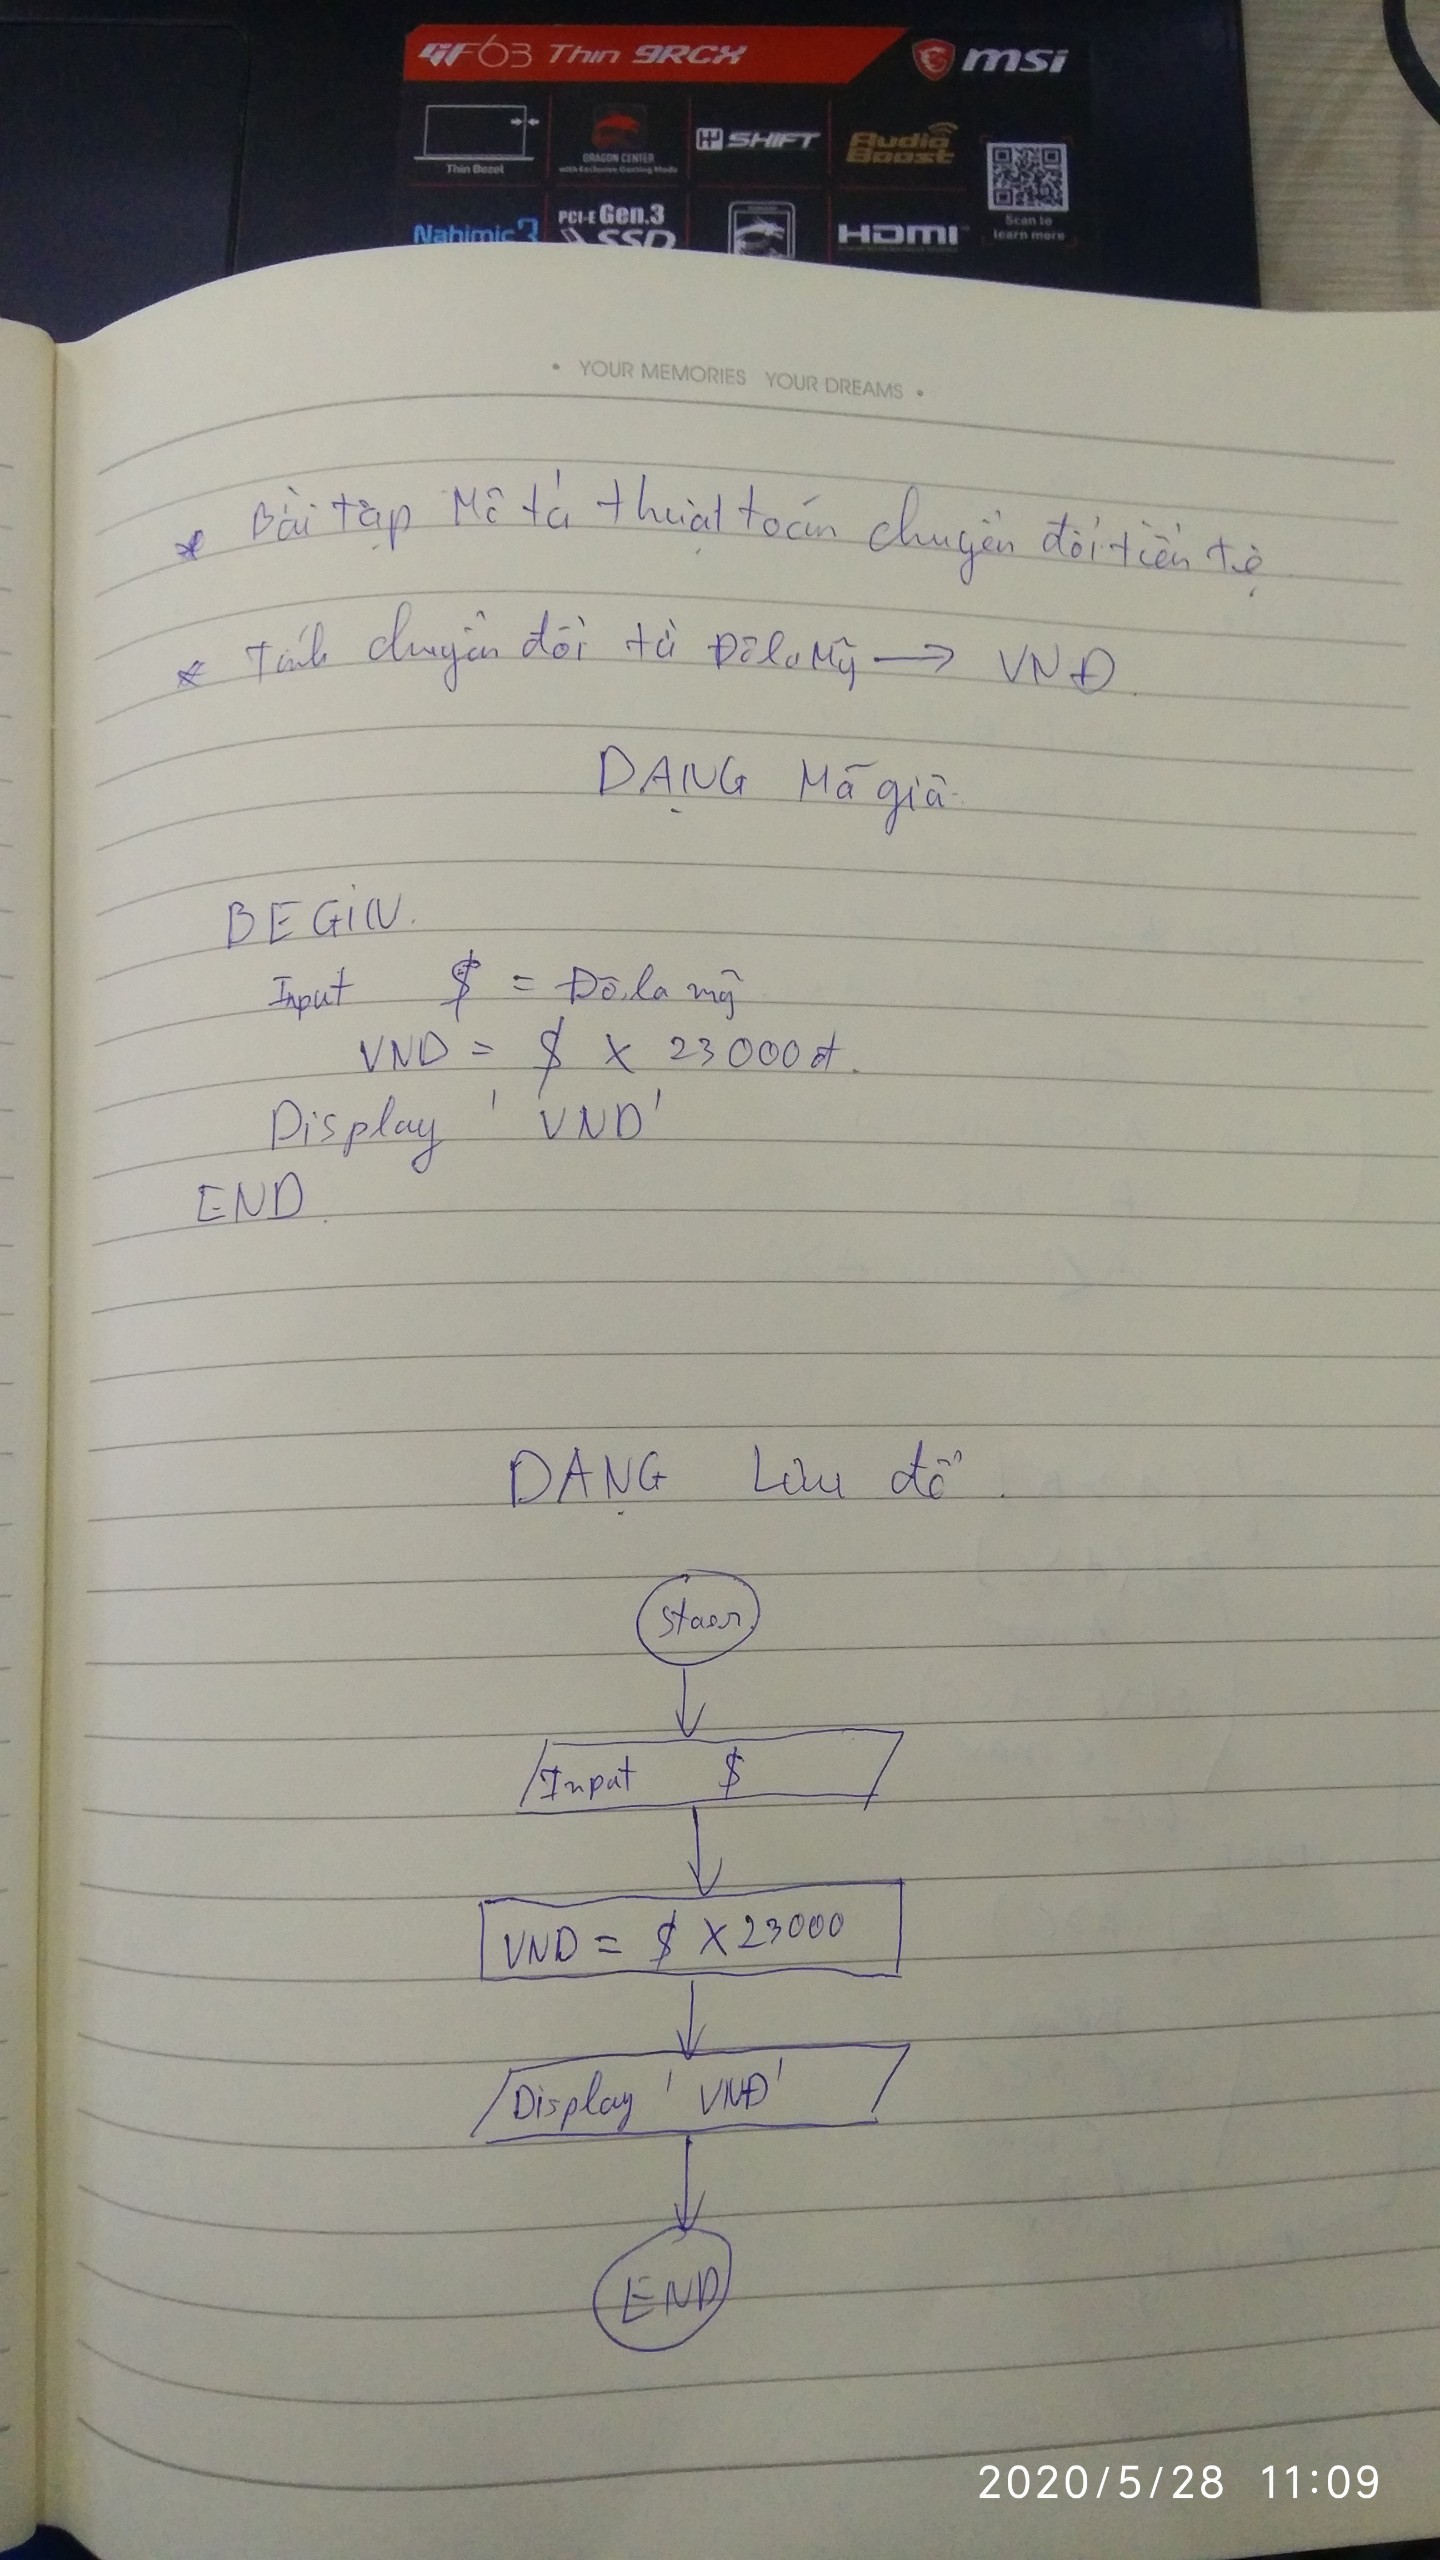 GF63 Thin 9RCX
msi
Thin Bezel
DRAGON CENTER
with Exclusive Gaming Mode
SHIFT
Audio Boost
Scan to learn more
Nahimic 3
PCI-E Gen.3 SSD
HDMI
• YOUR MEMORIES YOUR DREAMS •
* Bài tập Mô tả thuật toán chuyển đổi tiền tệ
* Tính chuyển đổi từ Đôla Mỹ → VNĐ.
DẠNG Mã giả
BEGIN.
Input $ = Đô la mỹ
VND = $ x 23000đ.
Display ' VND'
END.
DẠNG Lưu đồ.
Input $
VND = $ x 23000
Display ' VNĐ'
END
2020/5/28 11:09